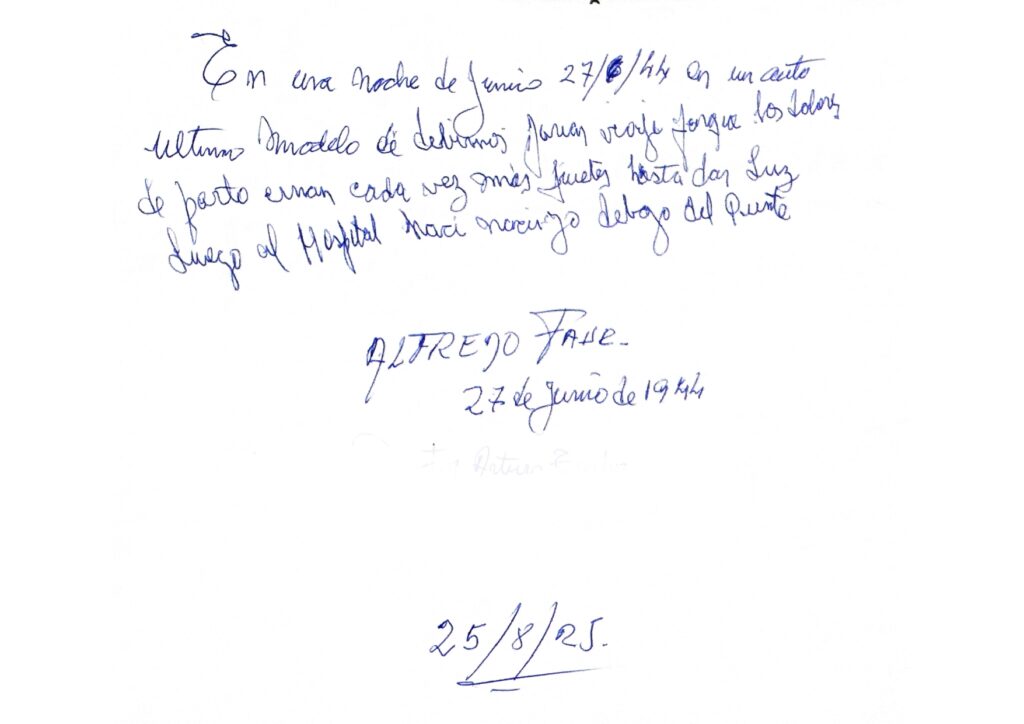 En una noche de Junio 27/6/44 en un auto
ultimo modelo de debimos parar viaje porque los dolores
de parto erran cada vez más fuetes hasta dar Luz
Luego al Hospital Naci debajo del Puente
ALFREDO
27 de Junio de 1944
25/8/25.